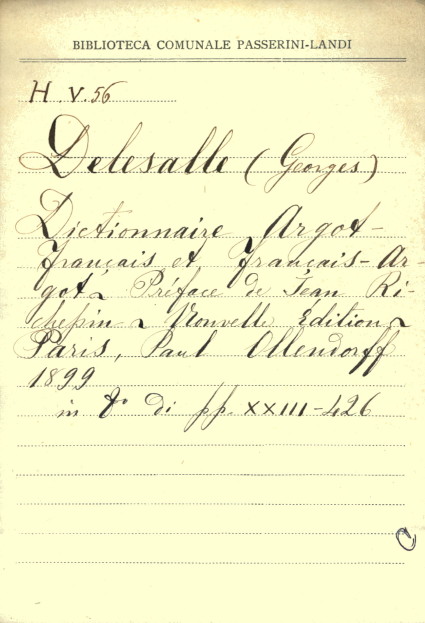 BIBLIOTECA COMUNALE PASSERINI-LANDI
H. V. 56
Delesalle (Georges)
Dictionnaire Argot-
français et français-Ar-
got ~ Préface de Jean Ri-
chepin ~ Nouvelle Édition ~
Paris, Paul Ollendorff
1899
in 8° di pp. XXIII-426
C